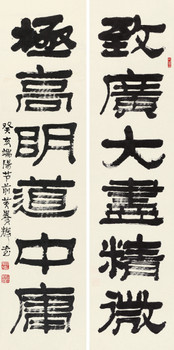 致廣大盡精微
極高明道中庸
癸亥端陽节前黃養輝书